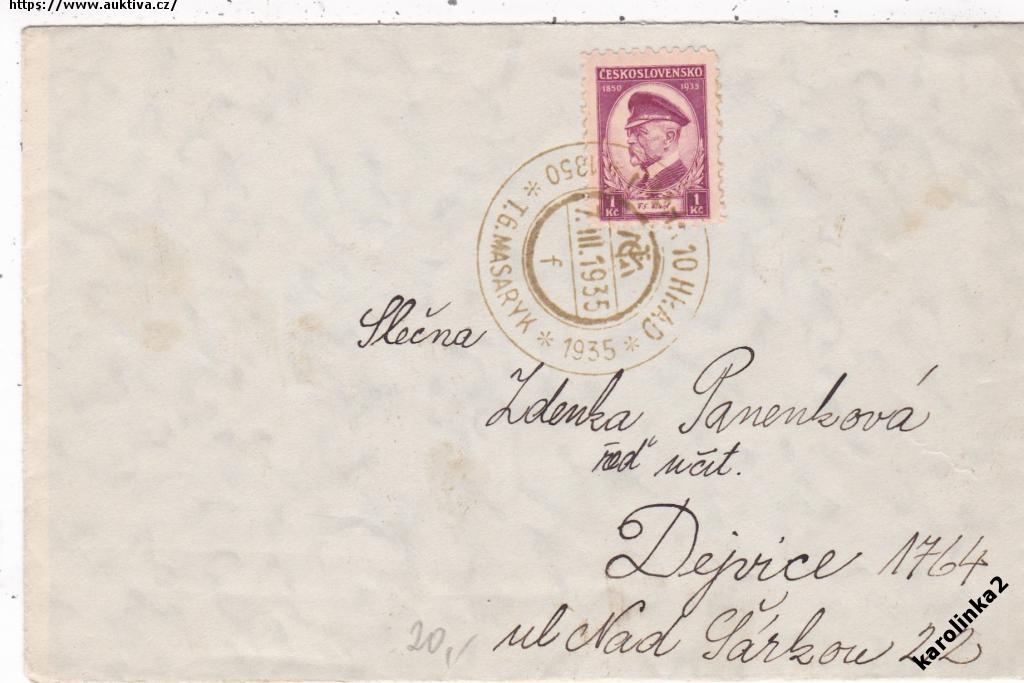 https://www.auktiva.cz/
ČESKOSLOVENSKO
1850 1935
1 Kč 1 Kč
10 HRAD
1850 * T.G.MASARYK * 1935 *
7.III.1935
f
Slečna
Zdenka Panenková
řed. učit.
Dejvice 1764
ul Nad Šárkou 22
20,-
karolinka2